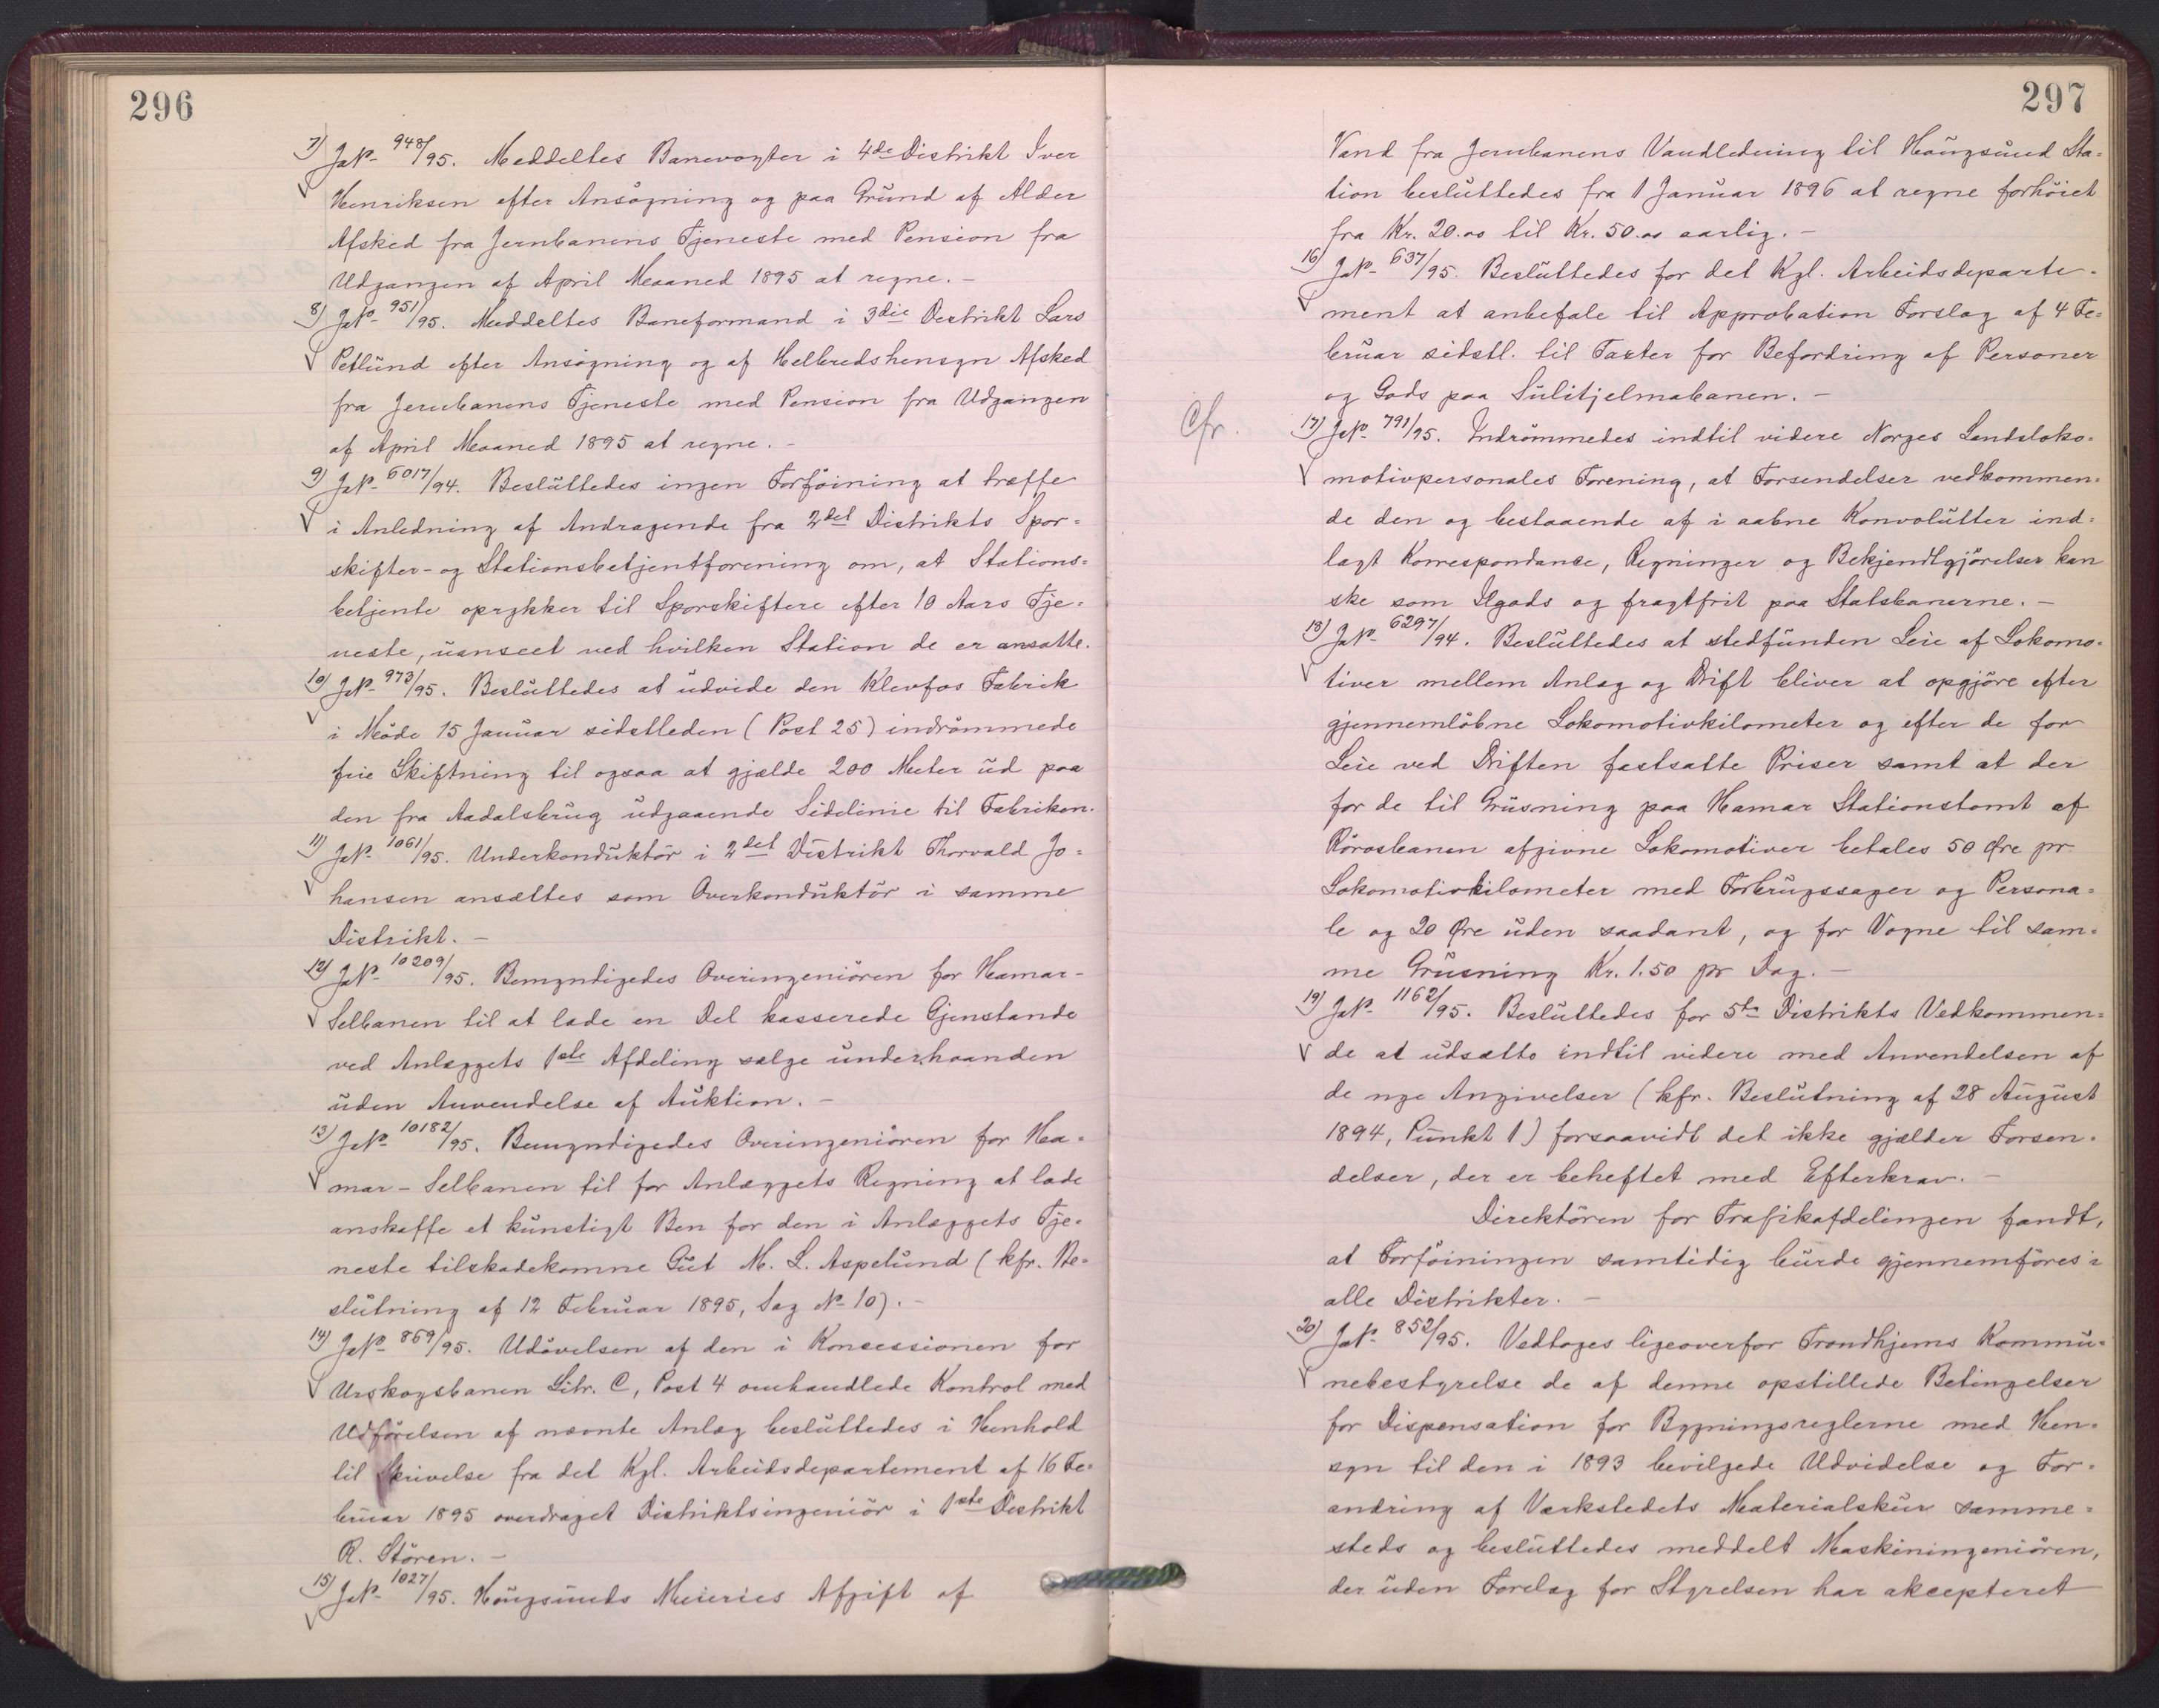 296
7) JN° 948/95. Meddeltes Banevogter i 4de Distrikt Iver
Henriksen efter Ansøgning og paa Grund af Alder
Afsked fra Jernbanens Tjeneste med Pension fra
Udgangen af April Maaned 1895 at regne. –
8) JN° 951/95. Meddeltes Baneformand i 3die Distrikt Lars
Petlund efter Ansøgning og af Helbredshensyn Afsked
fra Jernbanens Tjeneste med Pension fra Udgangen
af April Maaned 1895 at regne. –
9) JN° 6017/94. Besluttedes ingen Forføining at træffe
i Anledning af Andragende fra 2det Distrikts Spor=
skifter- og Stationsbetjentforening om, at Stations=
betjente oprykker til Sporskiftere efter 10 Aars Tje=
neste, uanseet ved hvilken Station de er ansatte.
10) JN° 973/95. Besluttedes at udvide den Klevfos Fabrik
i Møde 15 Januar sidstleden (Post 25) indrømmede
frie Skiftning til ogsaa at gjælde 200 Meter ud paa
den fra Aadalsbrug udgaaende Sidelinie til Fabriken.
11) JN° 1061/95. Underkonduktør i 2det Distrikt Thorvald Jo=
hansen ansættes som Overkonduktør i samme
Distrikt. –
12) JN° 10209/95. Bemyndigedes Overingeniøren for Hamar-
Selbanen til at lade en Del kasserede Gjenstande
ved Anlæggets 1ste Afdeling sælge underhaanden
uden Anvendelse af Auktion. –
13) JN° 10182/95. Bemyndigedes Overingeniøren for Ha=
mar-Selbanen til for Anlæggets Regning at lade
anskaffe et kunstigt Ben for den i Anlæggets Tje=
neste tilskadekomne Gut M. L. Aspelund (kfr. Be=
slutning af 12 Februar 1895, Sag N° 10). –
14) JN° 869/95. Udøvelsen af den i Koncessionen for
Urskogsbanen Litr. C, Post 4 omhandlede Kontrol med
Udførelsen af nævnte Anlæg besluttedes i Henhold
til Skrivelse fra det Kgl. Arbeidsdepartement af 16 Fe=
bruar 1895 overdraget Distriktsingeniør i 1ste Distrikt
R. Støren. –
15) JN° 1027/95. Hougsunds Meieries Afgift af
297
Vand fra Jernbanens Vandledning til Hougsund Sta=
tion besluttedes fra 1 Januar 1896 at regne forhøiet
fra Kr. 20.00 til Kr. 50.00 aarlig. –
16) JN° 637/95. Besluttedes for det Kgl. Arbeidsdeparte=
ment at anbefale til Approbation Forslag af 4 Fe=
bruar sidstl. til Taxter for Befordring af Personer
og Gods paa Sulitjelmabanen. –
Cfr. 17) JN° 791/95. Indrømmedes indtil videre Norges Landsloko=
motivpersonales Forening, at Forsendelser vedkommen=
de den og bestaaende af i aabne Konvolutter ind=
lagt Korrespondance, Regninger og Bekjendtgjørelser kan
ske som Ilgods og fragtfrit paa Statsbanerne. –
18) JN° 6297/94. Besluttedes at stedfunden Leie af Lokomo=
tiver mellem Anlæg og Drift bliver at opgjøre efter
gjennemløbne Lokomotivkilometer og efter de for
Leie ved Driften fastsatte Priser samt at der
for de til Grusning paa Hamar Stationstomt af
Rørosbanen afgivne Lokomotiver betales 50 Øre pr
Lokomotivkilometer med Forbrugssager og Persona=
le og 20 Øre uden saadant, og for Vogne til sam=
me Grusning Kr. 1.50 pr Dag. –
19) JN° 1162/95. Besluttedes for 5te Distrikts Vedkommen=
de at udsætte indtil videre med Anvendelsen af
de nye Angivelser (kfr. Beslutning af 28 August
1894, Punkt 1) forsaavidt det ikke gjælder Forsen=
delser, der er beheftet med Efterkrav. –
Direktøren for Trafikafdelingen fandt,
at Forføiningen samtidig burde gjennemføres i
alle Distrikter. –
20) JN° 852/95. Vedtoges ligeoverfor Trondhjems Kommu=
nebestyrelse de af denne opstillede Betingelser
for Dispensation for Bygningsreglerne med Hen=
syn til den i 1893 bevilgede Udvidelse og For=
andring af Værkstedets Materialskur samme=
steds og besluttedes meddelt Maskiningeniøren,
der uden Forelæg for Styrelsen har akcepteret